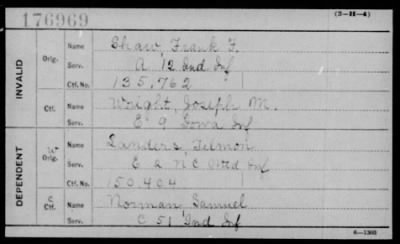 176969
(3-H-4)
INVALID
Orig.
Name Shaw, Frank F.
Serv. A 12 Ind Inf
Ctf. No. 135,762
Ctf.
Name Wright, Joseph M.
Serv. E 9 Iowa Inf
DEPENDENT
Orig.
Name Sanders, Telmon
Serv. E 2 N C Mtd Inf
Ctf. No. 150.404
C
Ctf.
Name Norman Samuel
Serv. C 51 Ind Inf